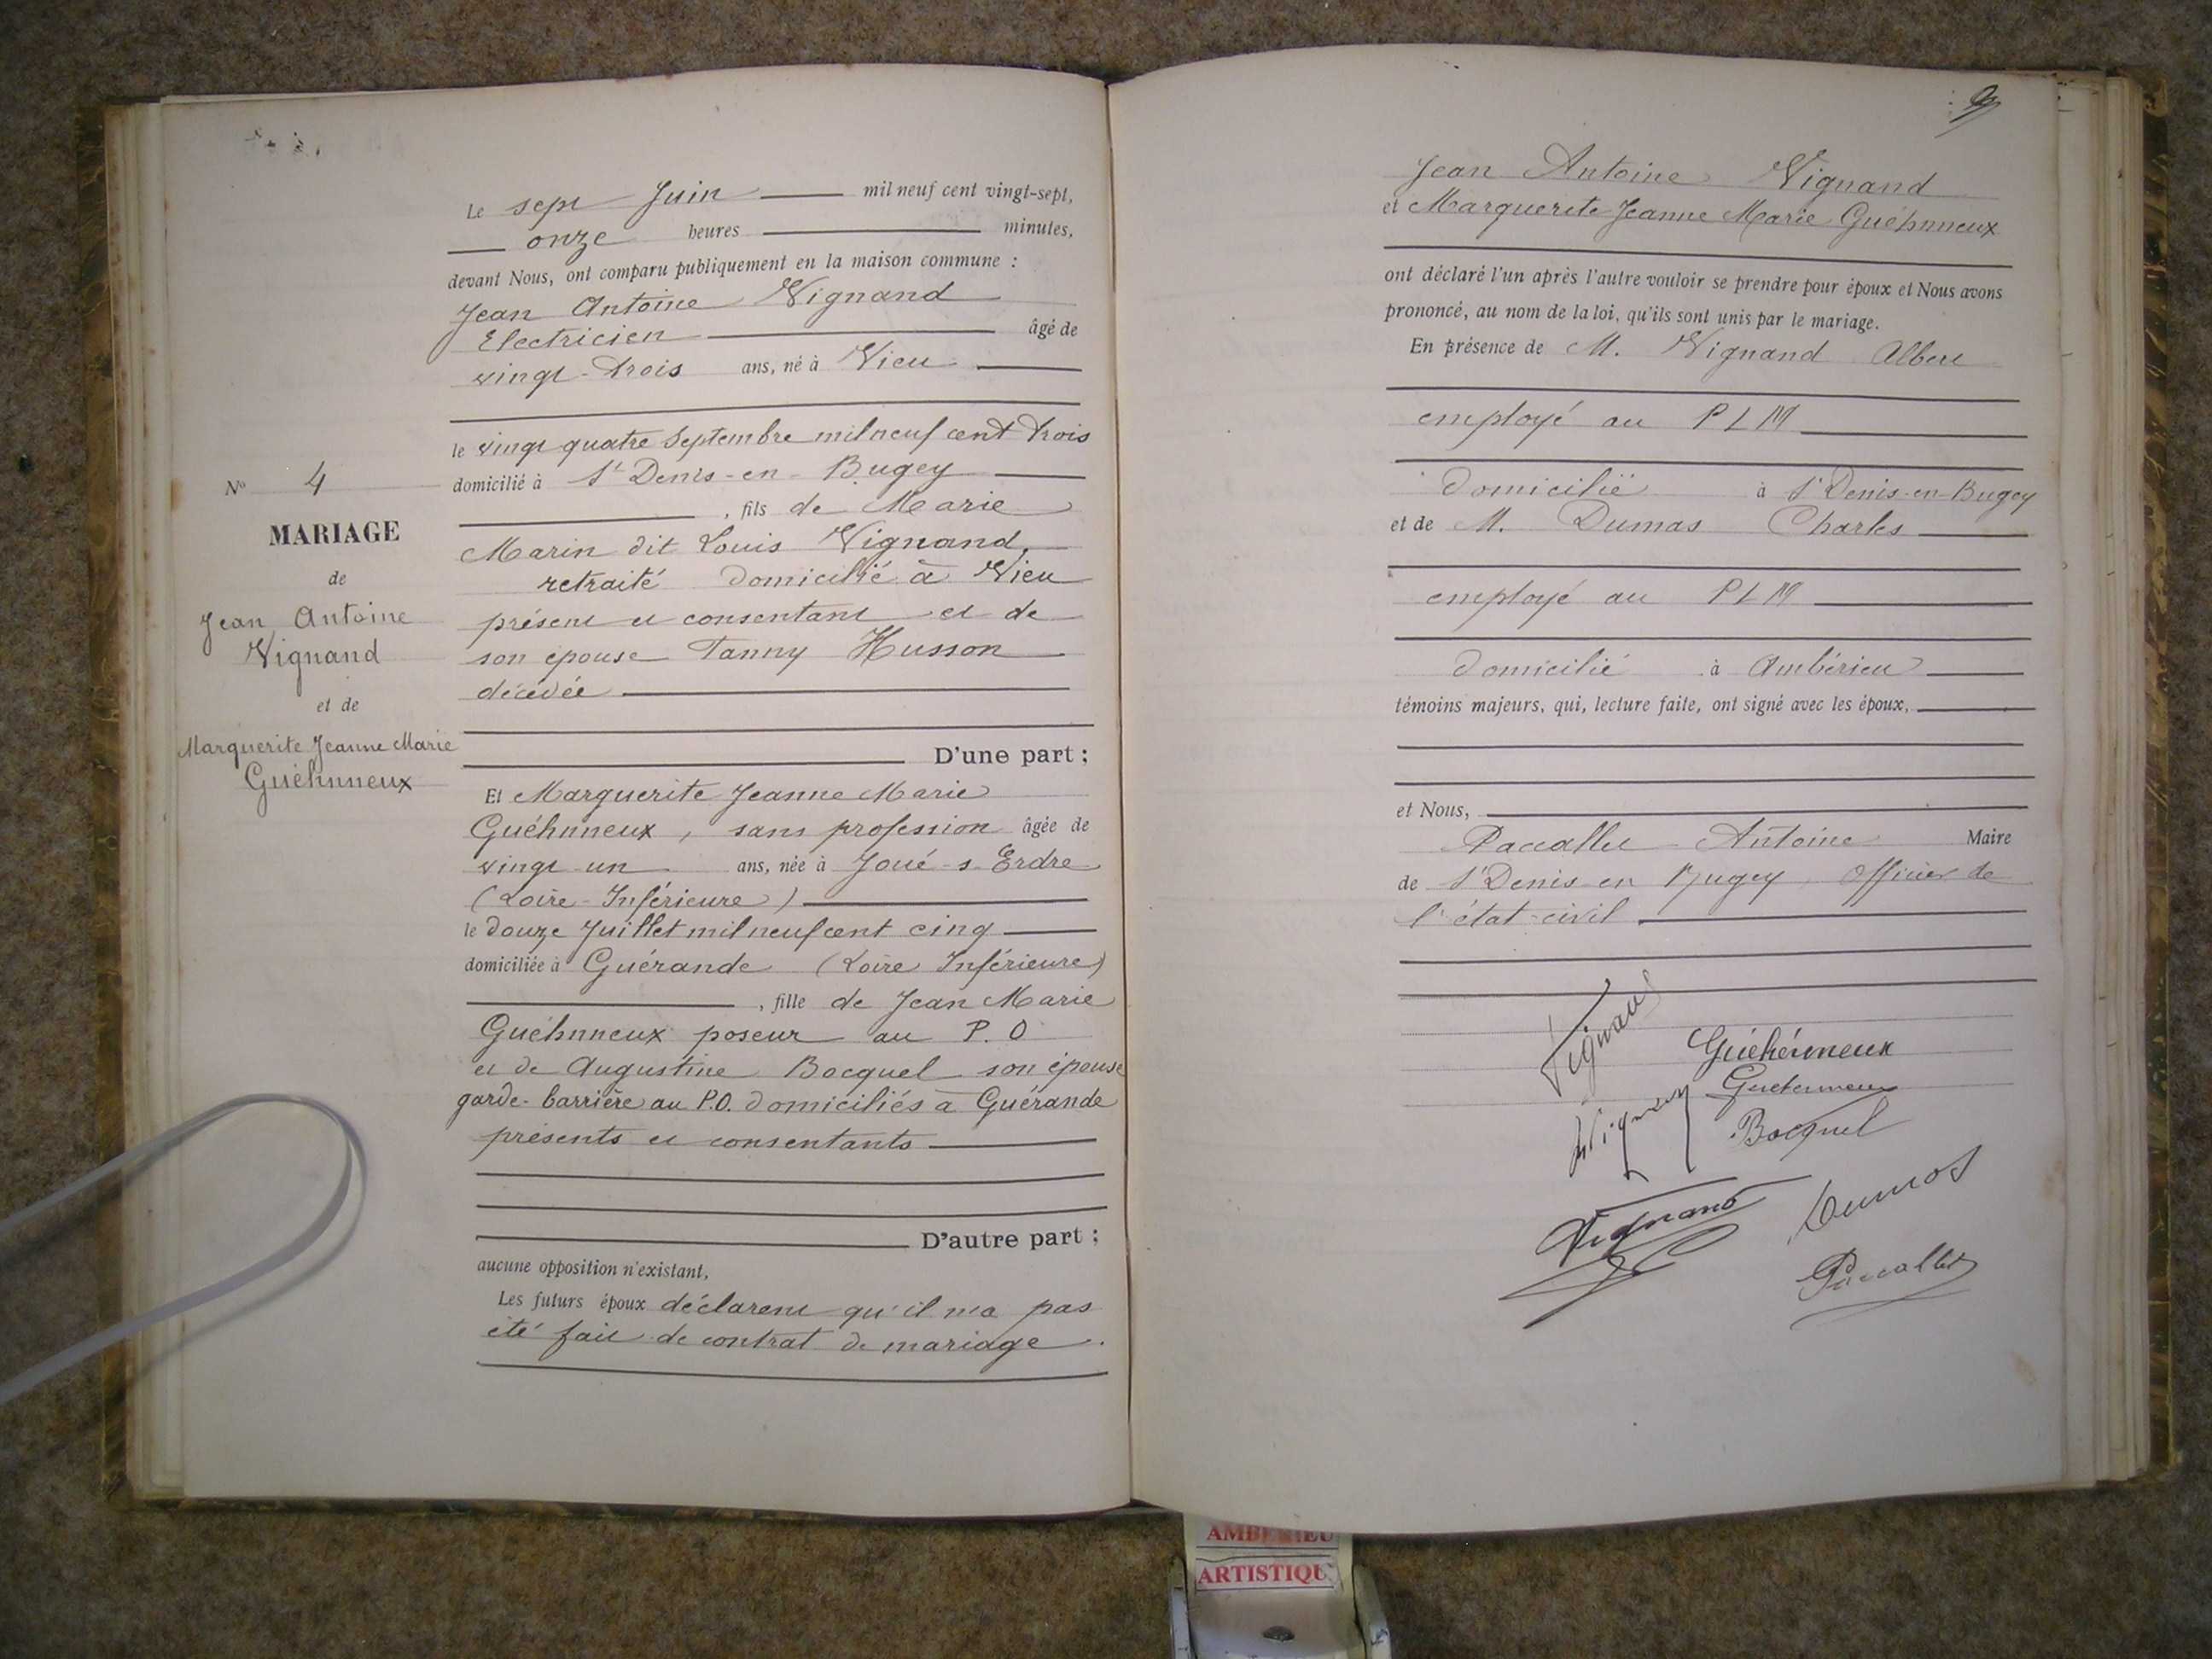 Le sept Juin mil neuf cent vingt-sept,
onze heures minutes,
devant Nous, ont comparu publiquement en la maison commune :
Jean Antoine Vignand
Electricien âgé de
vingt-trois ans, né à Vieu
le vingt quatre Septembre mil neuf cent trois
domicilié à St Denis-en-Bugey
, fils de Marie
Marin dit Louis Vignand,
retraité domicilié à Vieu
présent et consentant et de
son épouse Fanny Husson
décédée
D'une part ;
No 4
MARIAGE
de
Jean Antoine
Vignand
et de
Marguerite Jeanne Marie
Guéhnneux
Et Marguerite Jeanne Marie
Guéhnneux, sans profession âgée de
vingt-un ans, née à Joué-s-Erdre
(Loire-Inférieure)
le douze Juillet mil neuf cent cinq
domiciliée à Guérande (Loire Inférieure)
, fille de Jean Marie
Guéhnneux poseur au P.O
et de Augustine Bocquel son épouse
garde-barrière au P.O. domiciliés à Guérande
présents et consentants
D'autre part ;
aucune opposition n'existant,
Les futurs époux déclarent qu'il n'a pas
été fait de contrat de mariage.
9
Jean Antoine Vignand
et Marguerite Jeanne Marie Guéhnneux
ont déclaré l'un après l'autre vouloir se prendre pour époux et Nous avons
prononcé, au nom de la loi, qu'ils sont unis par le mariage.
En présence de M. Vignand Albert
employé au PLM
domicilié à St Denis-en-Bugey
et de M. Dumas Charles
employé au PLM
domicilié à Ambérieu
témoins majeurs, qui, lecture faite, ont signé avec les époux,
et Nous,
Paccallet Antoine Maire
de St Denis en Bugey, Officier de
l'état-civil
Vignand
Guéhénneux
Vignand
Bocquel
Vignand
Dumas
Paccallet
AMBERIEU
ARTISTIQU